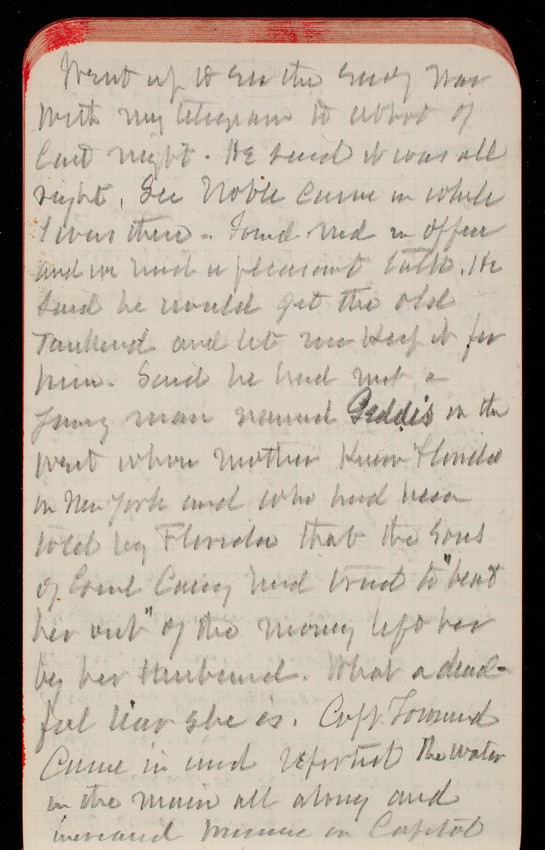 Went up to see the Secy War
with my telegram to Abbot of
last night. He said it was all
right. Sec Noble came in while
I was there - found Ned in office
and we had a pleasant talk. He
said he would get the old
Tankard and let me keep it for
him. Said he had met a
young man named Geddis in the
west whose mother knew Florida
in New York and who had been
told by Florida that the sons
of Coml Casey had tried to "beat
her out" of the money left her
by her Husband. What a dread-
ful liar she is. Capt
came in and reported the water
in the main all along and
increased in Capitol